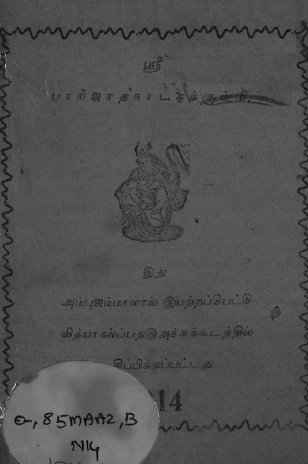 ஸ்ரீ
பாரிஜாதநாடகக்கும்மி
இது
அம்புஜம்மாளால் இயற்றப்பெட்டு
வித்யாகல்ப்பதரு அச்சுக்கூடத்தில்
பிப்பிக்கப்பட்டது
14
O-, 85MAAZ, B
N14